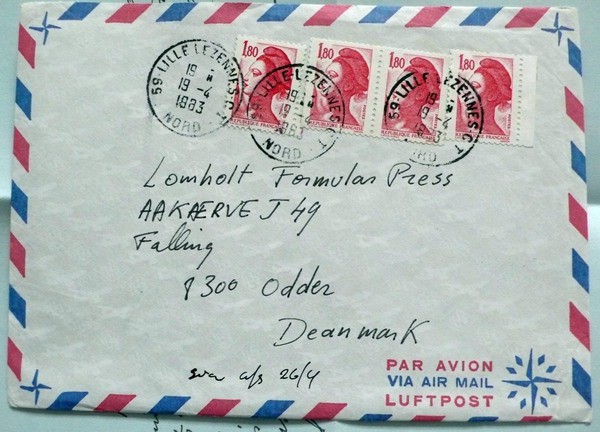 59-LILLE LEZENNES C.T
19 H
19-4
1983
NORD
1,80
1,80
1,80
1,80
REPUBLIQUE FRANÇAISE
59-LILLE-LEZENNES-C.T
19
1983
NORD
59-LILLE-LEZENNES-C.T
NORD
Lomholt Formular Press
AAKÆRVEJ 49
Falling
8300 Odder
Deanmark
sva afs 26/4
PAR AVION
VIA AIR MAIL
LUFTPOST